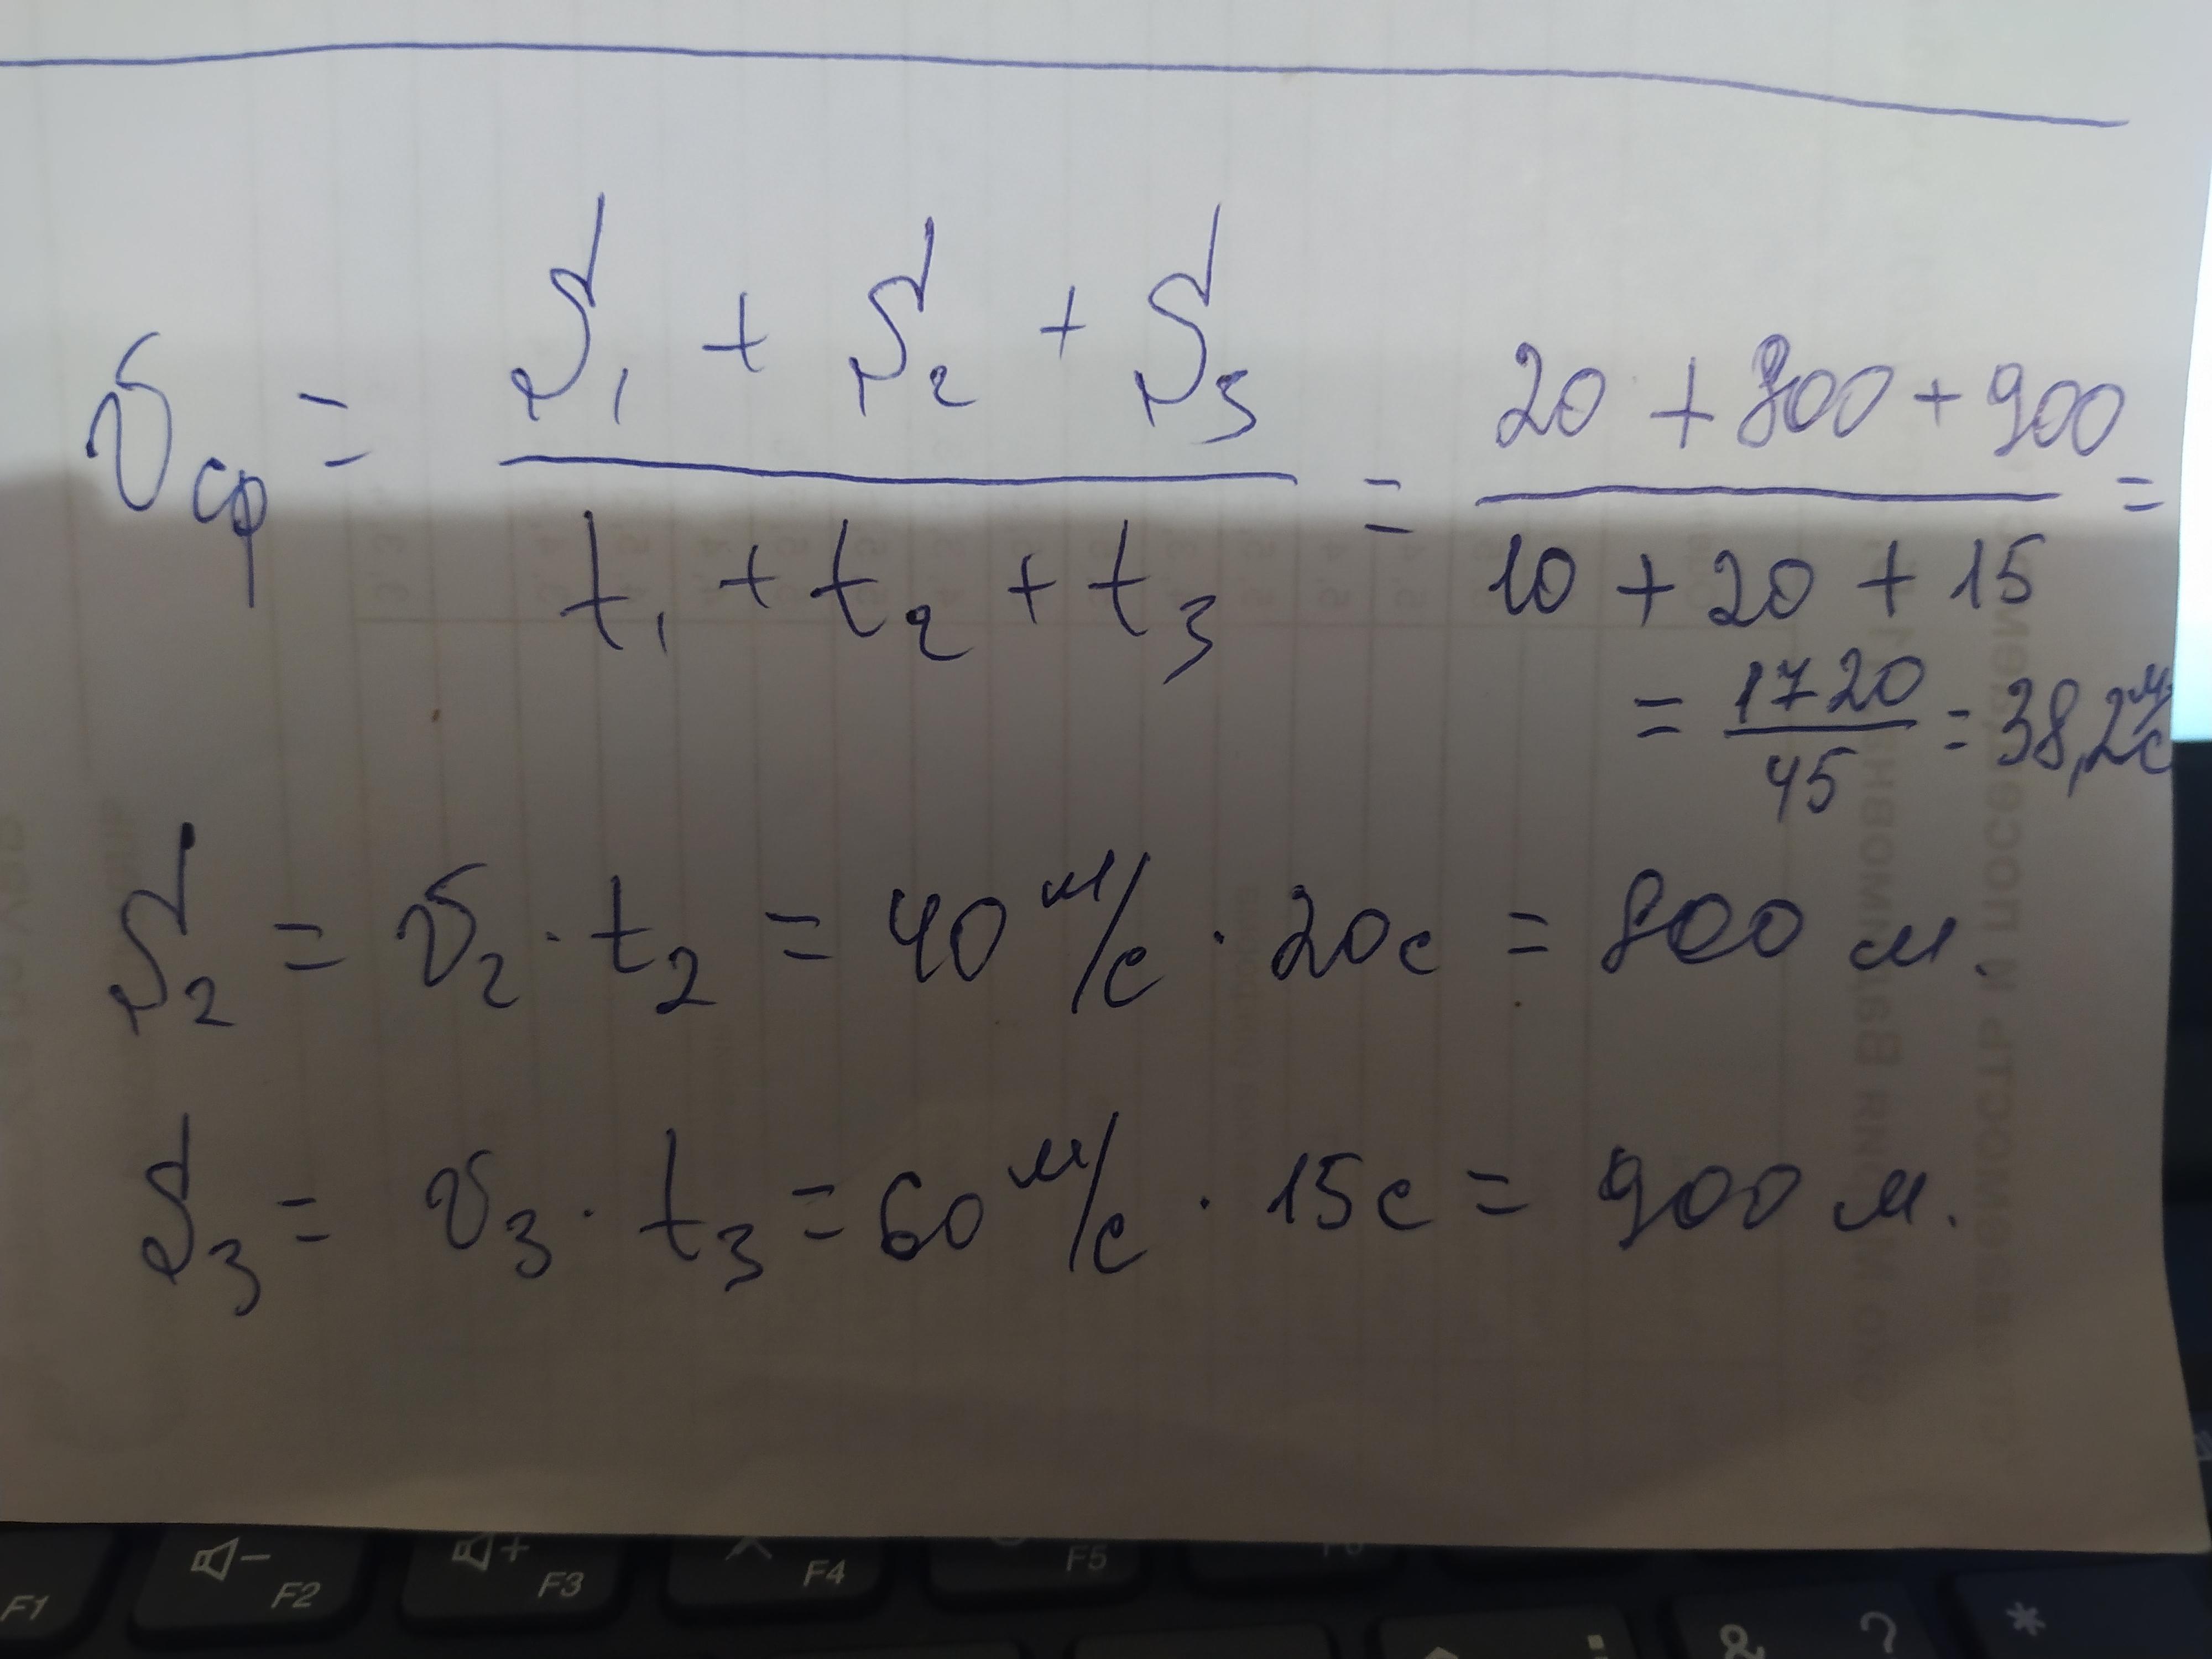 v_ср = (S₁ + S₂ + S₃) / (t₁ + t₂ + t₃) = (20 + 800 + 900) / (10 + 20 + 15) =
= 1720/45 = 38,2 м/с
S₂ = v₂ · t₂ = 40 м/с · 20с = 800 м.
S₃ = v₃ · t₃ = 60 м/с · 15с = 900 м.
F1 F2 F3 F4 F5
& ? *